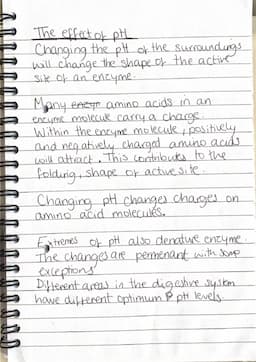 The effect of pH
Changing the pH of the surroundings
will change the shape of the active
site of an enzyme.
Many enzym amino acids in an
enzyme molecule carry a charge.
Within the enzyme molecule, positively
and negatively charged amino acids
will attract. This contributes to the
folding, shape of active site.
Changing pH changes charges on
amino acid molecules.
Extremes of pH also denature enzyme.
The changes are permenant with some
exceptions
Different areas in the digestive system
have different optimum pH levels.